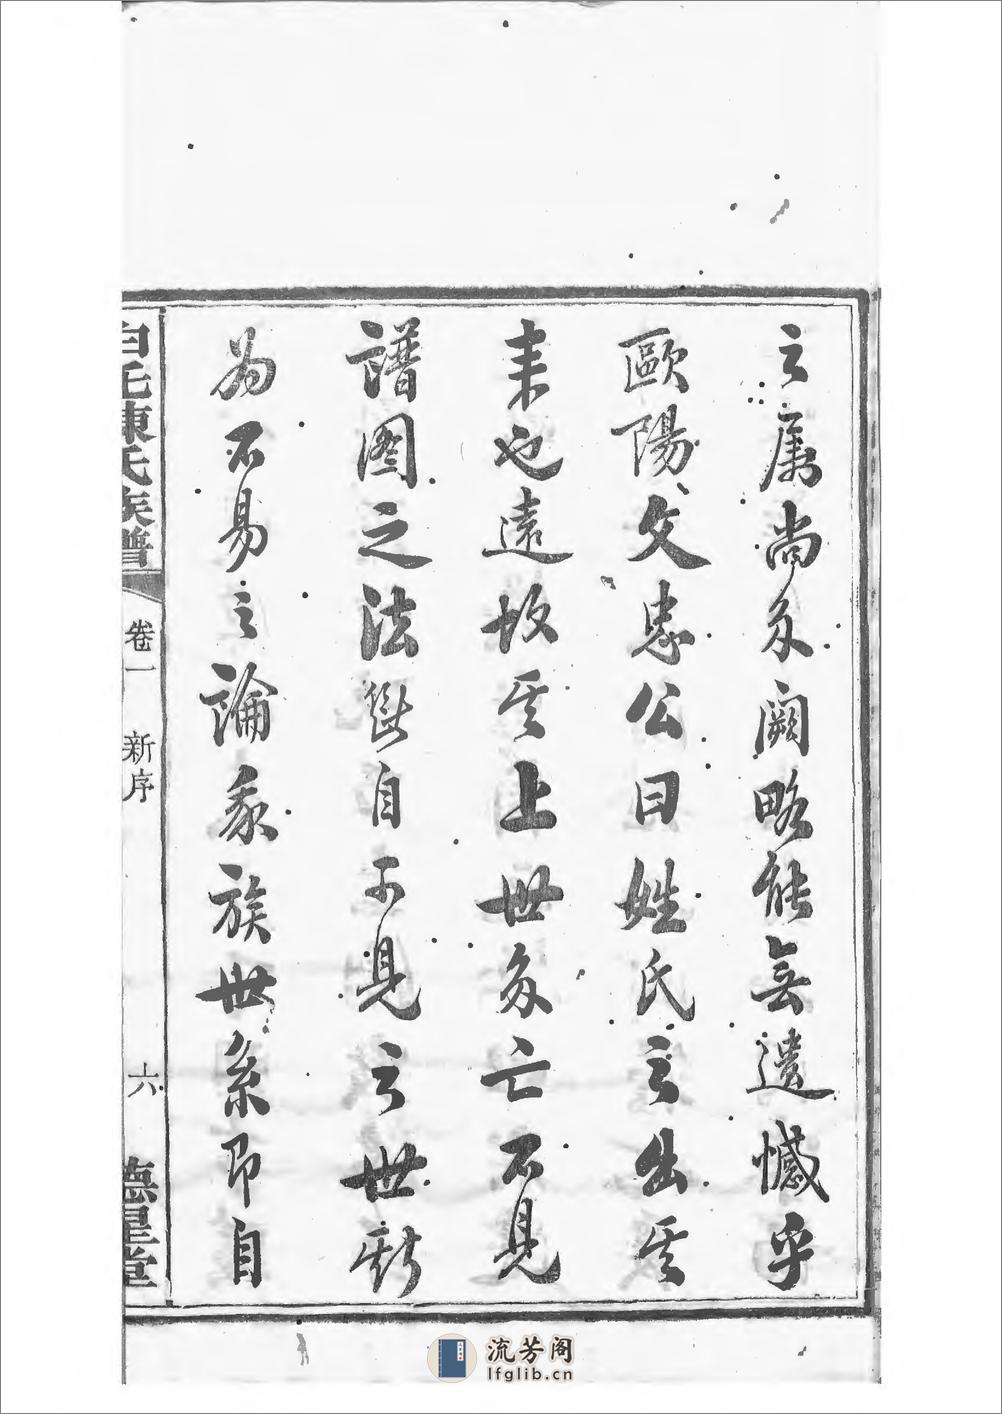 之屬尚多闕略能無遺憾乎
歐陽文忠公曰姓氏之出其
來也遠故其上世多亡不見
譜圖之法斷自可見之世斯
為不易之論矣族世系即自
白毛陳氏族譜
卷一
新序
六
德星堂
流芳阁
lfglib.cn